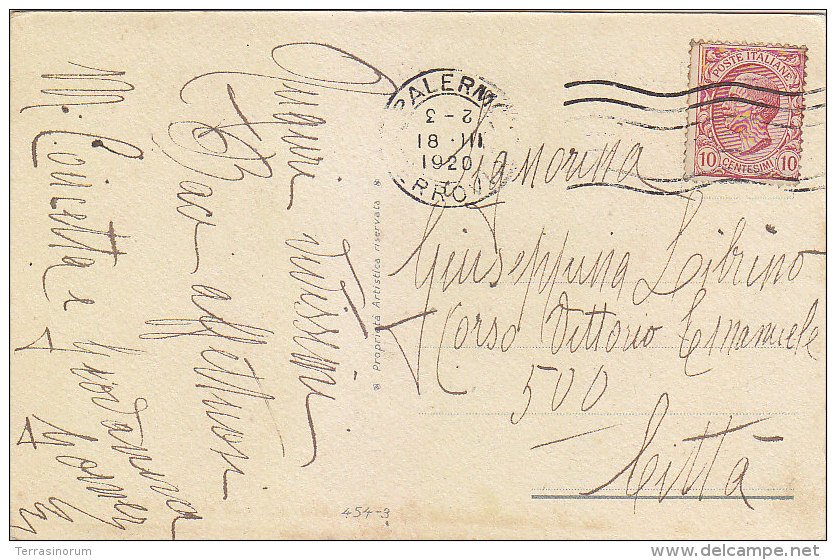 Auguri vivissimi
e Baci affettuosi
M. Concetta e Giovanna
Gomez
* Proprietà Artistica riservata *
454-3
PALERMO
2-3
18·III
1920
FERROVIA
POSTE ITALIANE
10 CENTESIMI 10
Signorina
Giuseppina Librino
Corso Vittorio Emanuele
500
Città
Terrasinorum
delcampe.net